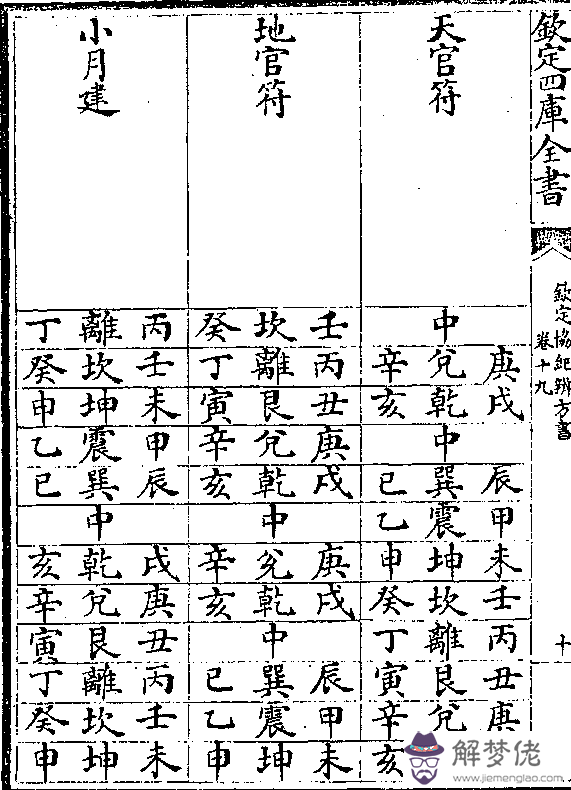 欽定四庫全書
欽定協紀辨方書
卷十九
十
天官符
中
庚兌辛
戌乾亥
中
辰巽巳
甲震乙
未坤申
壬坎癸
丙離丁
丑艮寅
庚兌辛
亥
地官符
壬坎癸
丙離丁
丑艮寅
庚兌辛
戌乾亥
中
庚兌辛
戌乾亥
中
辰巽巳
甲震乙
未坤申
小月建
丙離丁
壬坎癸
未坤申
甲震乙
辰巽巳
中
戌乾亥
庚兌辛
丑艮寅
丙離丁
壬坎癸
未坤申
解梦佬
www.jiemenglao.com